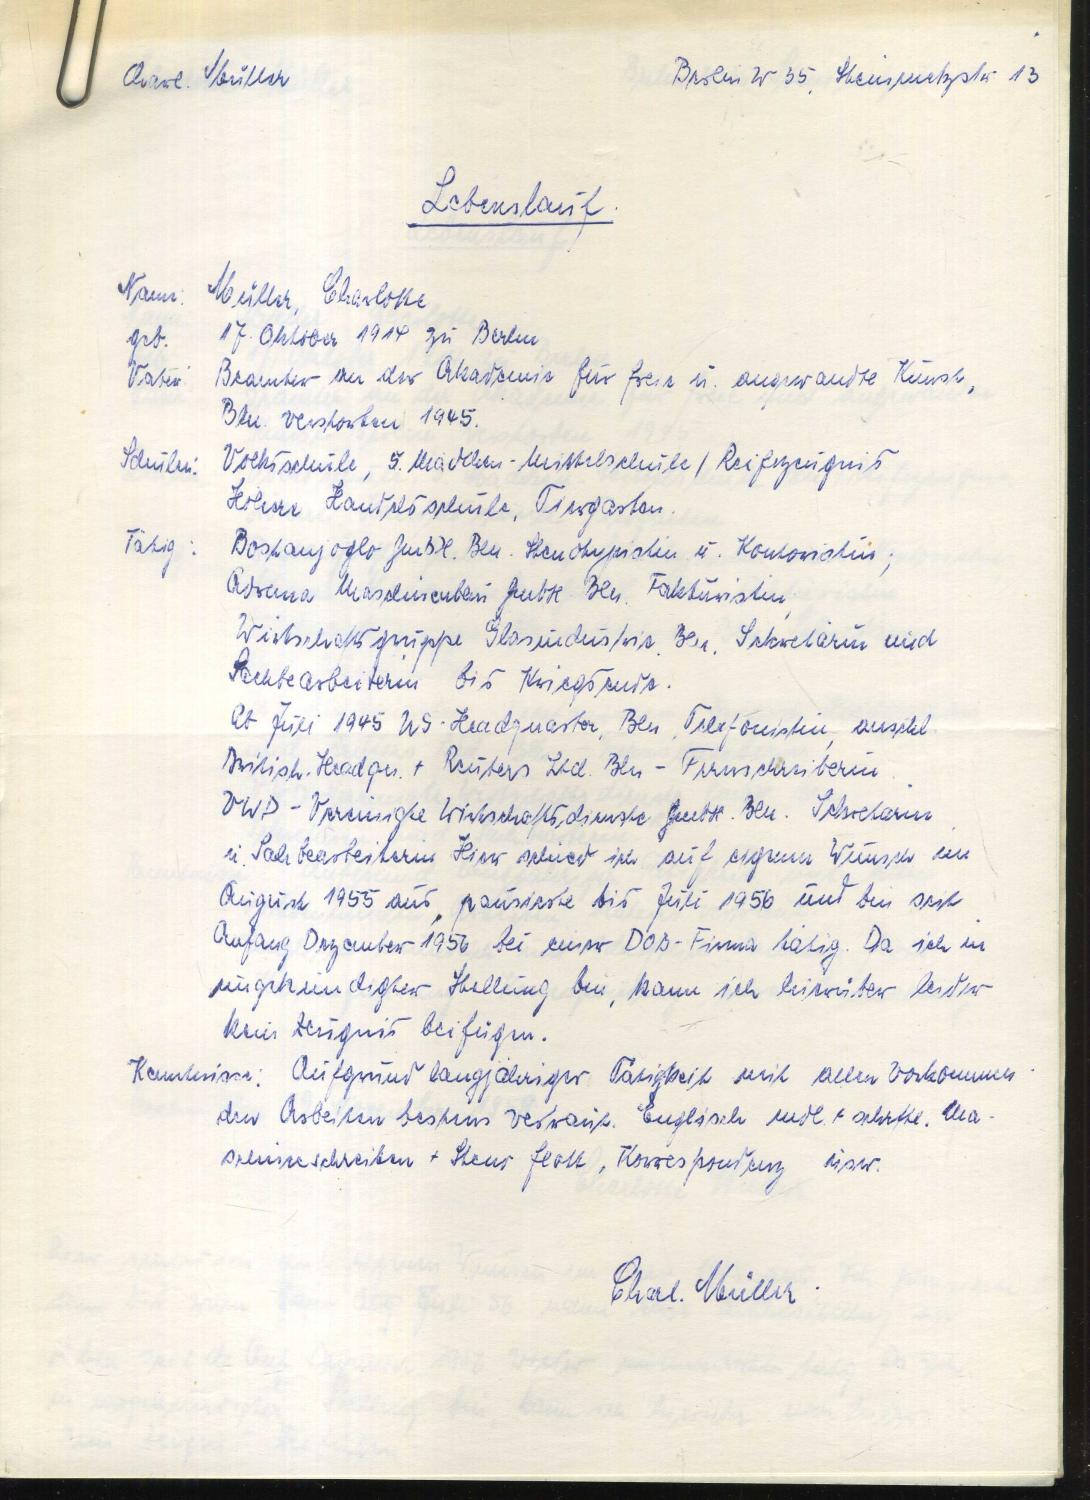 Charl. Müller
Berlin W 35, Steinmetzstr 13
Lebenslauf.
Name: Müller, Charlotte
geb. 17. Oktober 1914 zu Berlin
Vater: Beamter an der Akademie für freie u. angewandte Kunst,
Bln. verstorben 1945.
Schulen: Volksschule, 5. Mädchen-Mittelschule / Reifezeugnis
Höhere Handelsschule, Tiergarten.
Tätig: Bostanjoglo GmbH. Bln. Stenotypistin u. Kontoristin;
Adrema Maschinenbau GmbH Bln. Fakturistin,
Wirtschaftsgruppe Glasindustrie, Bln. Sekretärin und
Sachbearbeiterin bis Kriegsende.
Ab Juli 1945 US-Headquarter, Bln, Telefonistin, anschl.
British-Headqu. + Reuters Ltd. Bln - Fernschreiberin.
VWD - Vereinigte Wirtschaftsdienste GmbH. Bln. Sekretärin
u. Sachbearbeiterin Hier schied ich auf eigenen Wunsch im
August 1955 aus, pausierte bis Juli 1956 und bin seit
Anfang Dezember 1956 bei einer DOB-Firma tätig. Da ich in
ungekündigter Stellung bin, kann ich hierüber leider
kein Zeugnis beifügen.
Kenntnisse: Aufgrund langjähriger Tätigkeit mit allen vorkommen-
den Arbeiten bestens vertraut. Englisch mdl. + schrftl. Ma-
schineschreiben + Steno flott, Korrespondenz usw.
Charl. Müller.